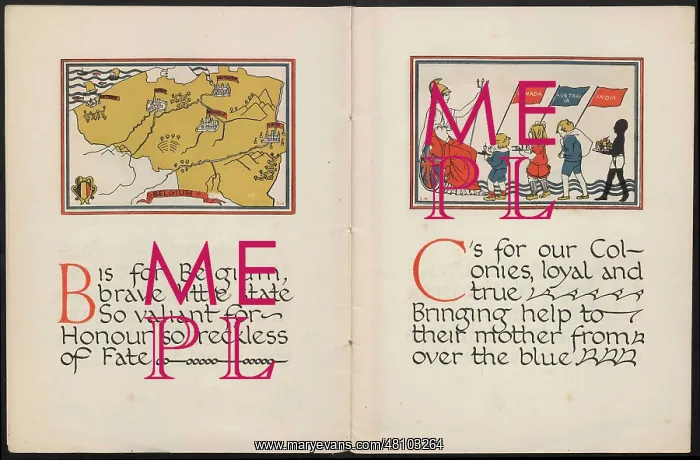 BELGIUM
B is for Belgium,
brave little state
So valiant for
Honour so reckless
of Fate
NADA
AUSTRAL
IA
INDIA
C's for our Col-
onies, loyal and
true
Bringing help to
their mother from
over the blue
ME
PL
ME
PL
www.maryevans.com/48103264